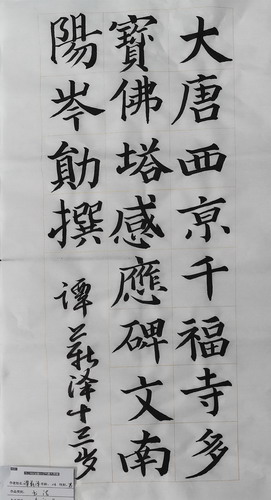 大唐西京千福寺多
寶佛塔感應碑文南
陽岑勛撰
譚蘄泽十三岁